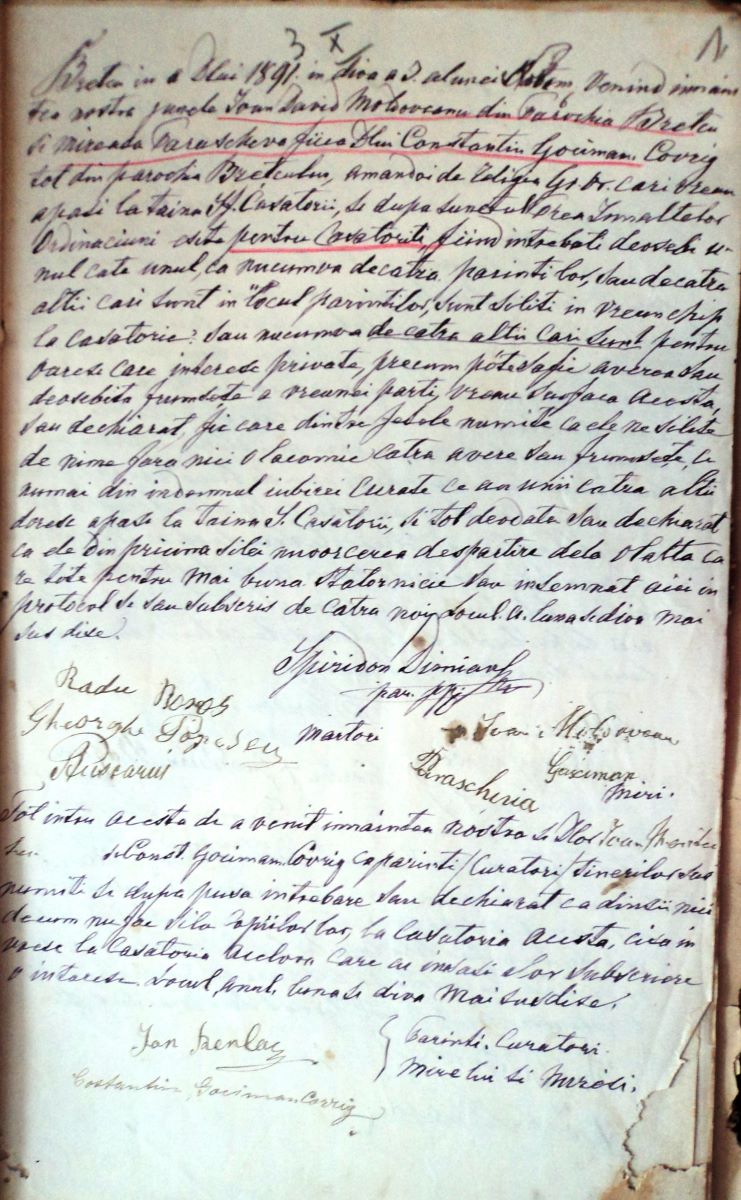 3 X
Bretcu in a Dlui 1891. in Diva a 3. a lunei Venind innain
tea nostra junele Ioan David Moldoveanu din Parochia Bretcu
si mireasa Parascheva fiica Dlui Constantin Gociman Covrig
tot din parochia Bretcului, amandoi de religia Gr. Or. cari vreau
apasi la taina Sf. Casatorii, se dupa sunetul Inaltelor
Ordinaciuni este pentru Casatoriti, fiind intrebati deosebi u-
nul cate unul, ca nucumva decatra parintilor, sau decatra
altii cari sunt in locul parintilor, sunt siliti in vreun chip
la casatorie? sau nucumva de catra altii cari sunt pentru
oarese care interese private, precum pote sa fie averea sau
deosebita frumsete a vreunei parti, vreau sa faca acesta,
sau dechiarat, fie care dintre fesele numite ca ele nesilite
de nime fara nici o lacomie catra avere sau frumusete, ci
numai din indemnul iubirei curate ce au unii catra altii
doresc apase la taina S. Casatorii, si tot deodata sau dechiarat
ca ele din pricina silei nu vor cerea despartire dela olalta ca
re tote pentru mai buna Statornicie sau insemnat aici in
protocol se sau subscris de catra noi, Locul. A. luna se diva mai
sus dise.
Spiridon Dimian
par.
Radu
Gheorghe Popescu martori Ioan Moldovean
Parascheria Gociman Miri.
Tot intru acesta de a venit innaintea nostra si Dlor Ioan
si Const. Gociman Covrig ca parinti/Curatori/tinerilor sus
numite se dupa pusa intrebare sau dechiarat ca dinsii nici
decum nu fac sila copiilor lor, la Casatoria acesta, ci sa in
voese la Casatoria acelora care cu insasi a lor subscriere
o intarese. Locul, anul, luna se diva Mai sus dise.
Ion
Costantin, Gociman Covrig
Parinti. Curatori.
Mirelui si Miresi.